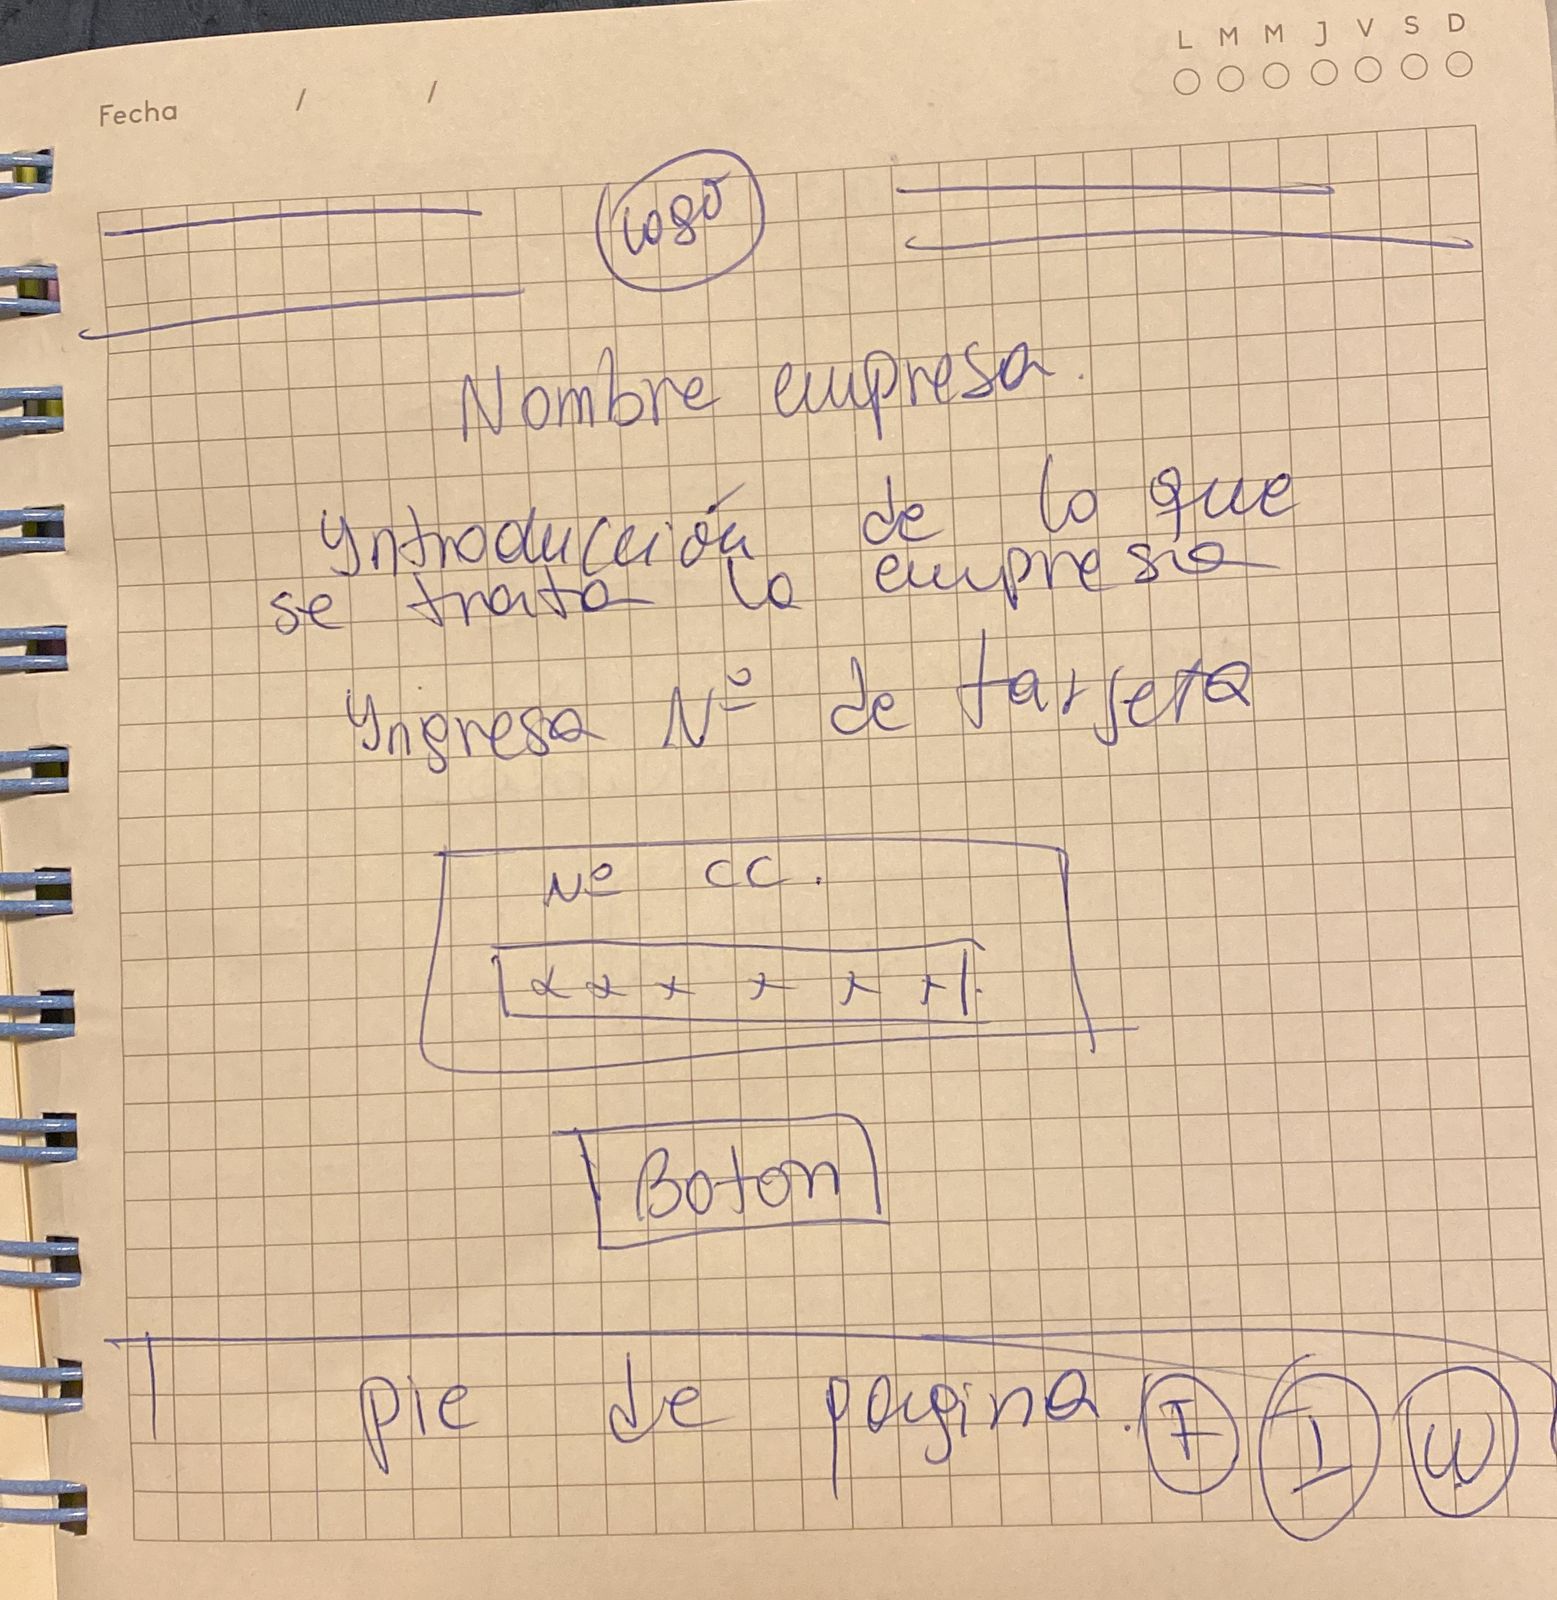 L M M J V S D
Fecha / /
Logo
Nombre empresa.
Introducción de lo que
se trata la empresa
Ingresa Nº de tarjeta
Nº CC.
x x x x x x
Boton
pie de pagina. F I W